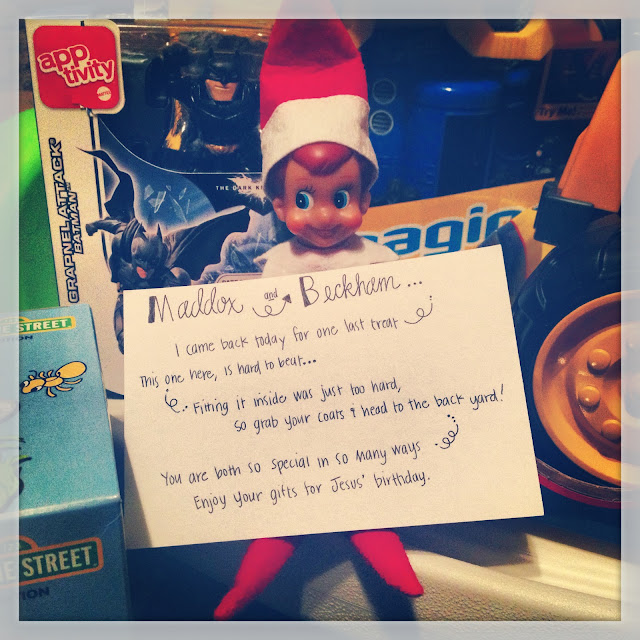 app
tivity
MATTEL
GRAPNEL ATTACK
BATMAN
THE DARK KN
Try Me!
magic
Maddox and Beckham...
I came back today for one last treat
This one here, is hard to beat...
Fitting it inside was just too hard,
so grab your coats & head to the back yard!
You are both so special in so many ways
Enjoy your gifts for Jesus' birthday.
E STREET
TION
E STREET
TION